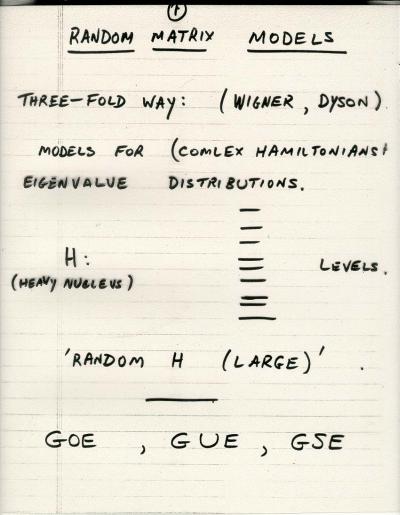 1
RANDOM MATRIX MODELS
THREE-FOLD WAY: (WIGNER, DYSON)
MODELS FOR (COMLEX HAMILTONIANS)
EIGENVALUE DISTRIBUTIONS.
H:
(HEAVY NUCLEUS)
LEVELS.
'RANDOM H (LARGE)'.
GOE, GUE, GSE